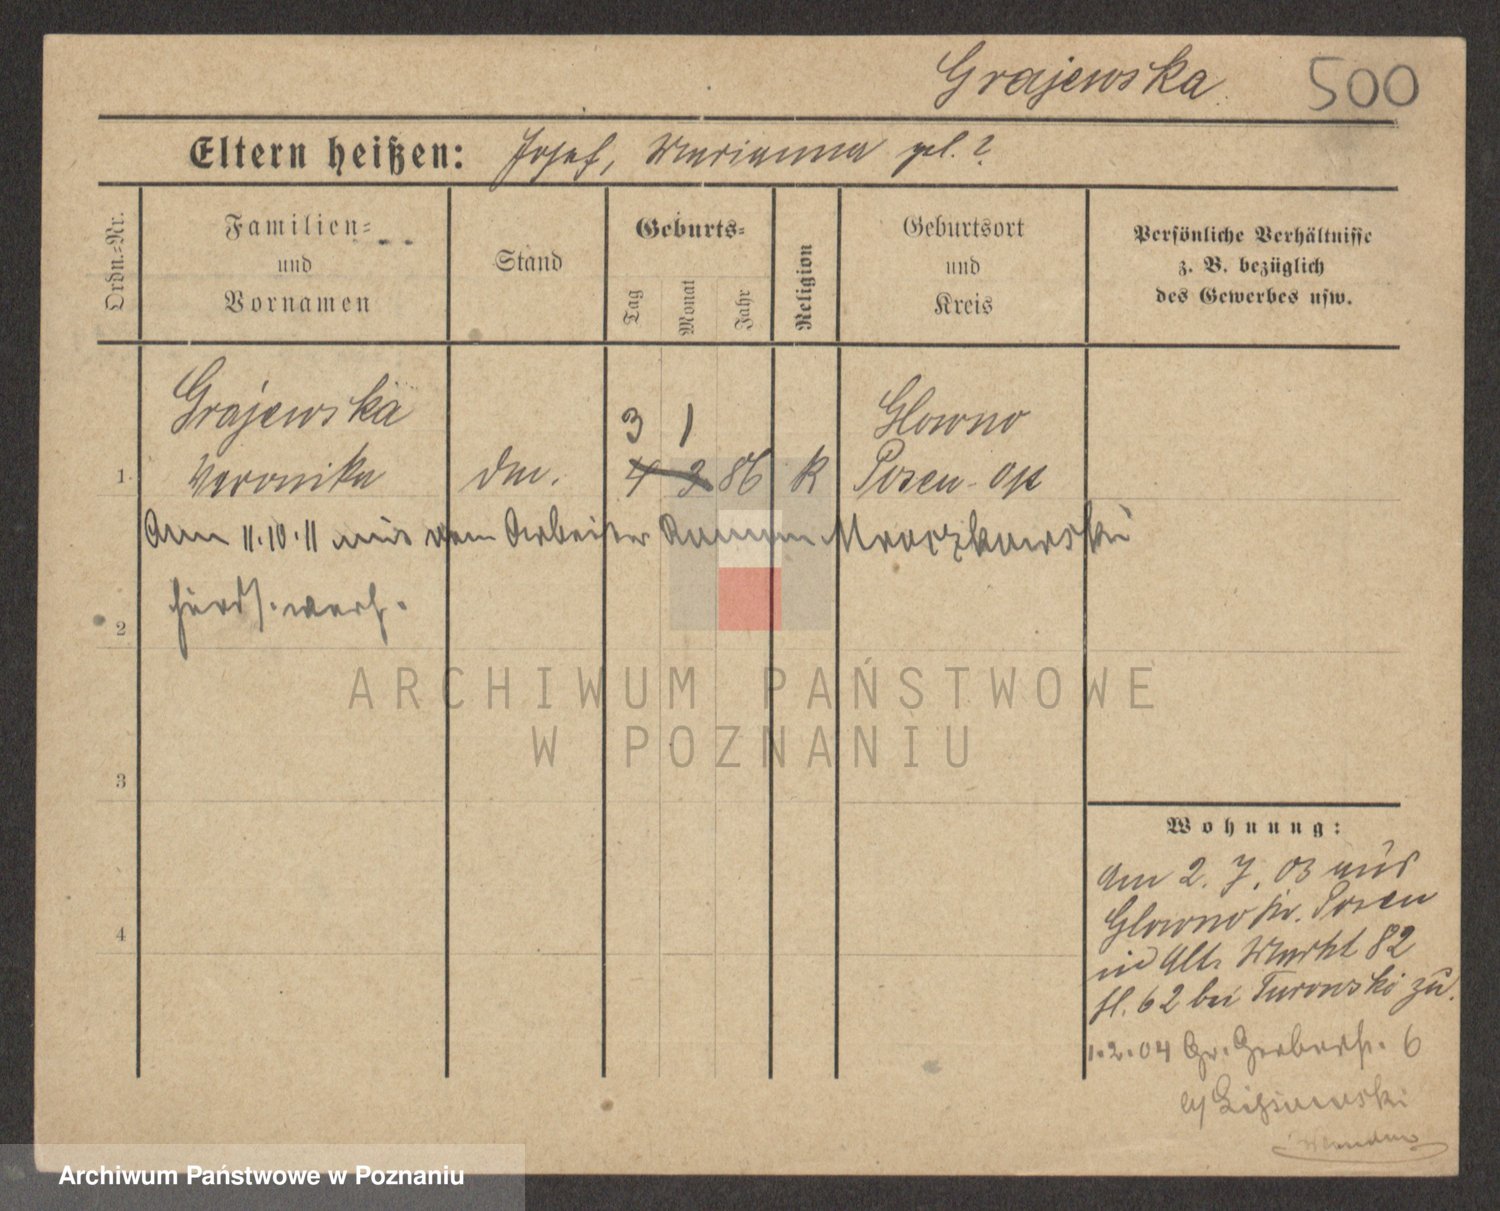 Grajewska 500
Eltern heißen: Josef, Marianna geb. ?
Ordn.-Nr.
Familien- und Vornamen
Stand
Geburts-
Tag Monat Jahr
Religion
Geburtsort und Kreis
Persönliche Verhältnisse
z. B. bezüglich
des Gewerbes usw.
Grajewska 3 1 Glowno
1. Veronika Dm. 4 3 86 K Posen-Ost
Am 11.10.11 mit dem Arbeiter Roman Mroczkowski
2
3
Wohnung:
4
am 2. 7. 03 aus
Glowno Kr. Posen
in Alt. Markt 82
bei Turowski zu.
1.2.04 Gr. Gerberstr. 6
ARCHIWUM PAŃSTWOWE
W POZNANIU
Archiwum Państwowe w Poznaniu